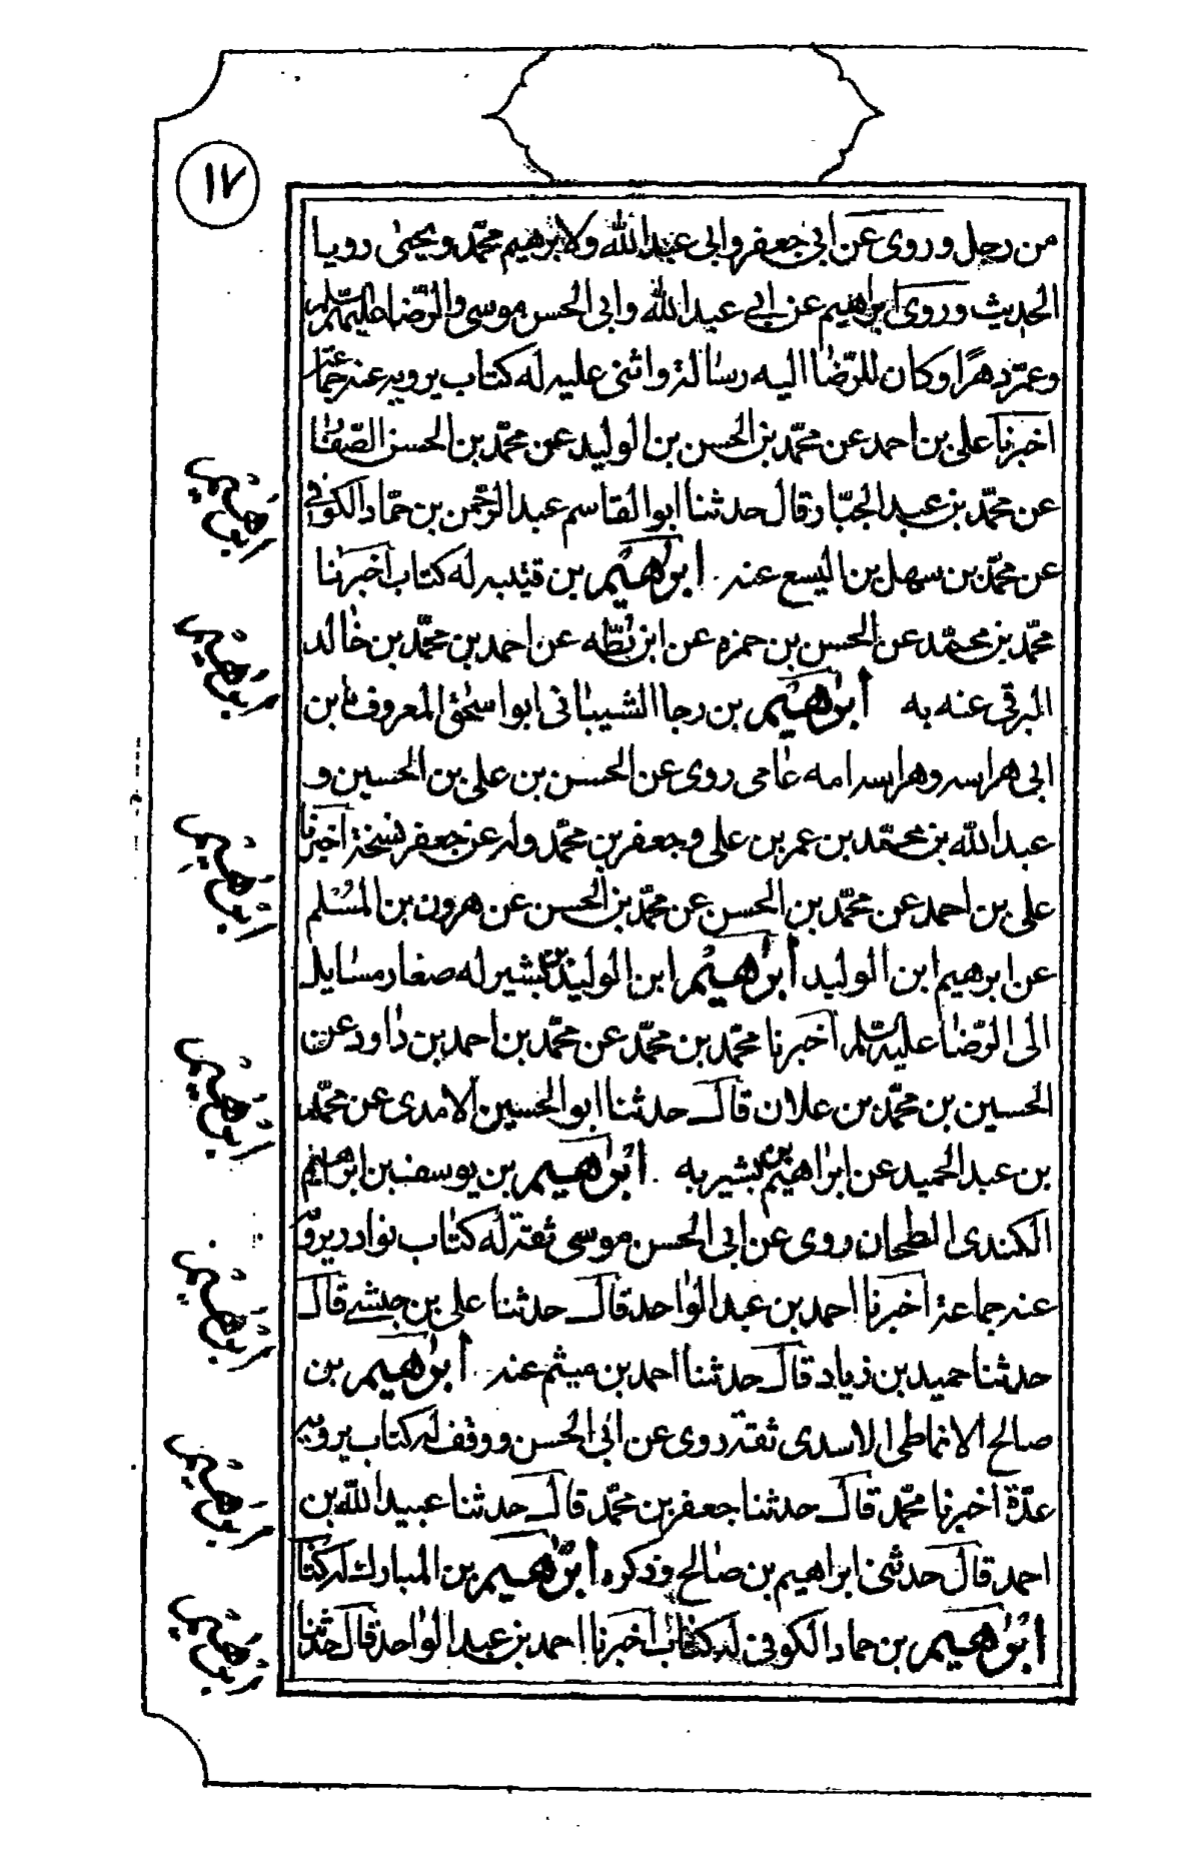 ١٧
من رجل وروى عن ابى جعفر وابى عبدالله ولابرهيم محمّد ويحيى رويا
الحديث وروى ابراهيم عن ابي عبدالله وابى الحسن موسى والرّضا عليهم السّلم
وعمّر دهرًا وكان للرّضا اليه رسالة واثنى عليه له كتاب يرويه عنه جماعة
اخبرنا على بن احمد عن محمّد بن الحسن بن الوليد عن محمّد بن الحسن الصّفّار
عن محمّد بن عبد الجبّار قال حدثنا ابوالقاسم عبدالرّحمن بن حمّاد الكوفي
عن محمّد بن سهل بن اليسع عنه . ابرٰهيم بن قتيبه له كتاب اخبرنا
محمّد بن محمّد عن الحسن بن حمزه عن ابن بُطّه عن احمد بن محمّد بن خالد
البرقى عنه به ابرٰهيم بن رجا الشيبانى ابو اسحٰق المعروف بابن
ابى هراسه وهراسه امه عامى روى عن الحسن بن على بن الحسين و
عبدالله بن محمّد بن عمر بن على وجعفر بن محمّد وله عن جعفر نسخة اخبرنا
على بن احمد عن محمّد بن الحسن عن محمّد بن الحسن عن هرون بن المُسْلم
عن ابرهيم ابن الوليد ابرٰهيم ابن الوليد بن بشير له صغار مسايل
الى الرّضا عليه السّلم اخبرنا محمّد بن محمّد عن محمّد بن احمد بن داود عن
الحسين بن محمّد بن علان قال حدثنا ابو الحسين الامدى عن محمّد
بن عبد الحميد عن ابراهيم بن بشير به . ابرٰهيم بن يوسف بن ابراهيم
الكندى الطحان روى عن ابى الحسن موسى ثقة له كتاب نوادر يرويه
عنه جماعة اخبرنا احمد بن عبد الواحد قال حدثنا على بن حبشي قال
حدثنا حميد بن زياد قال حدثنا احمد بن ميثم عنه . ابرٰهيم بن
صالح الانماطى الاسدى ثقة روى عن ابى الحسن ووقف له كتاب يرويه
عدّة اخبرنا محمّد قال حدثنا جعفر بن محمّد قال حدثنا عبيدالله بن
احمد قال حدثنى ابراهيم بن صالح وذكره ابرٰهيم بن المبارك له كتاب
ابرٰهيم بن حماد الكوفى له كتاب اخبرنا احمد بن عبد الواحد قال حدثنا
ابرهيم
ابرهيم
ابرهيم
ابرهيم
ابرهيم
ابرهيم
ابرهيم